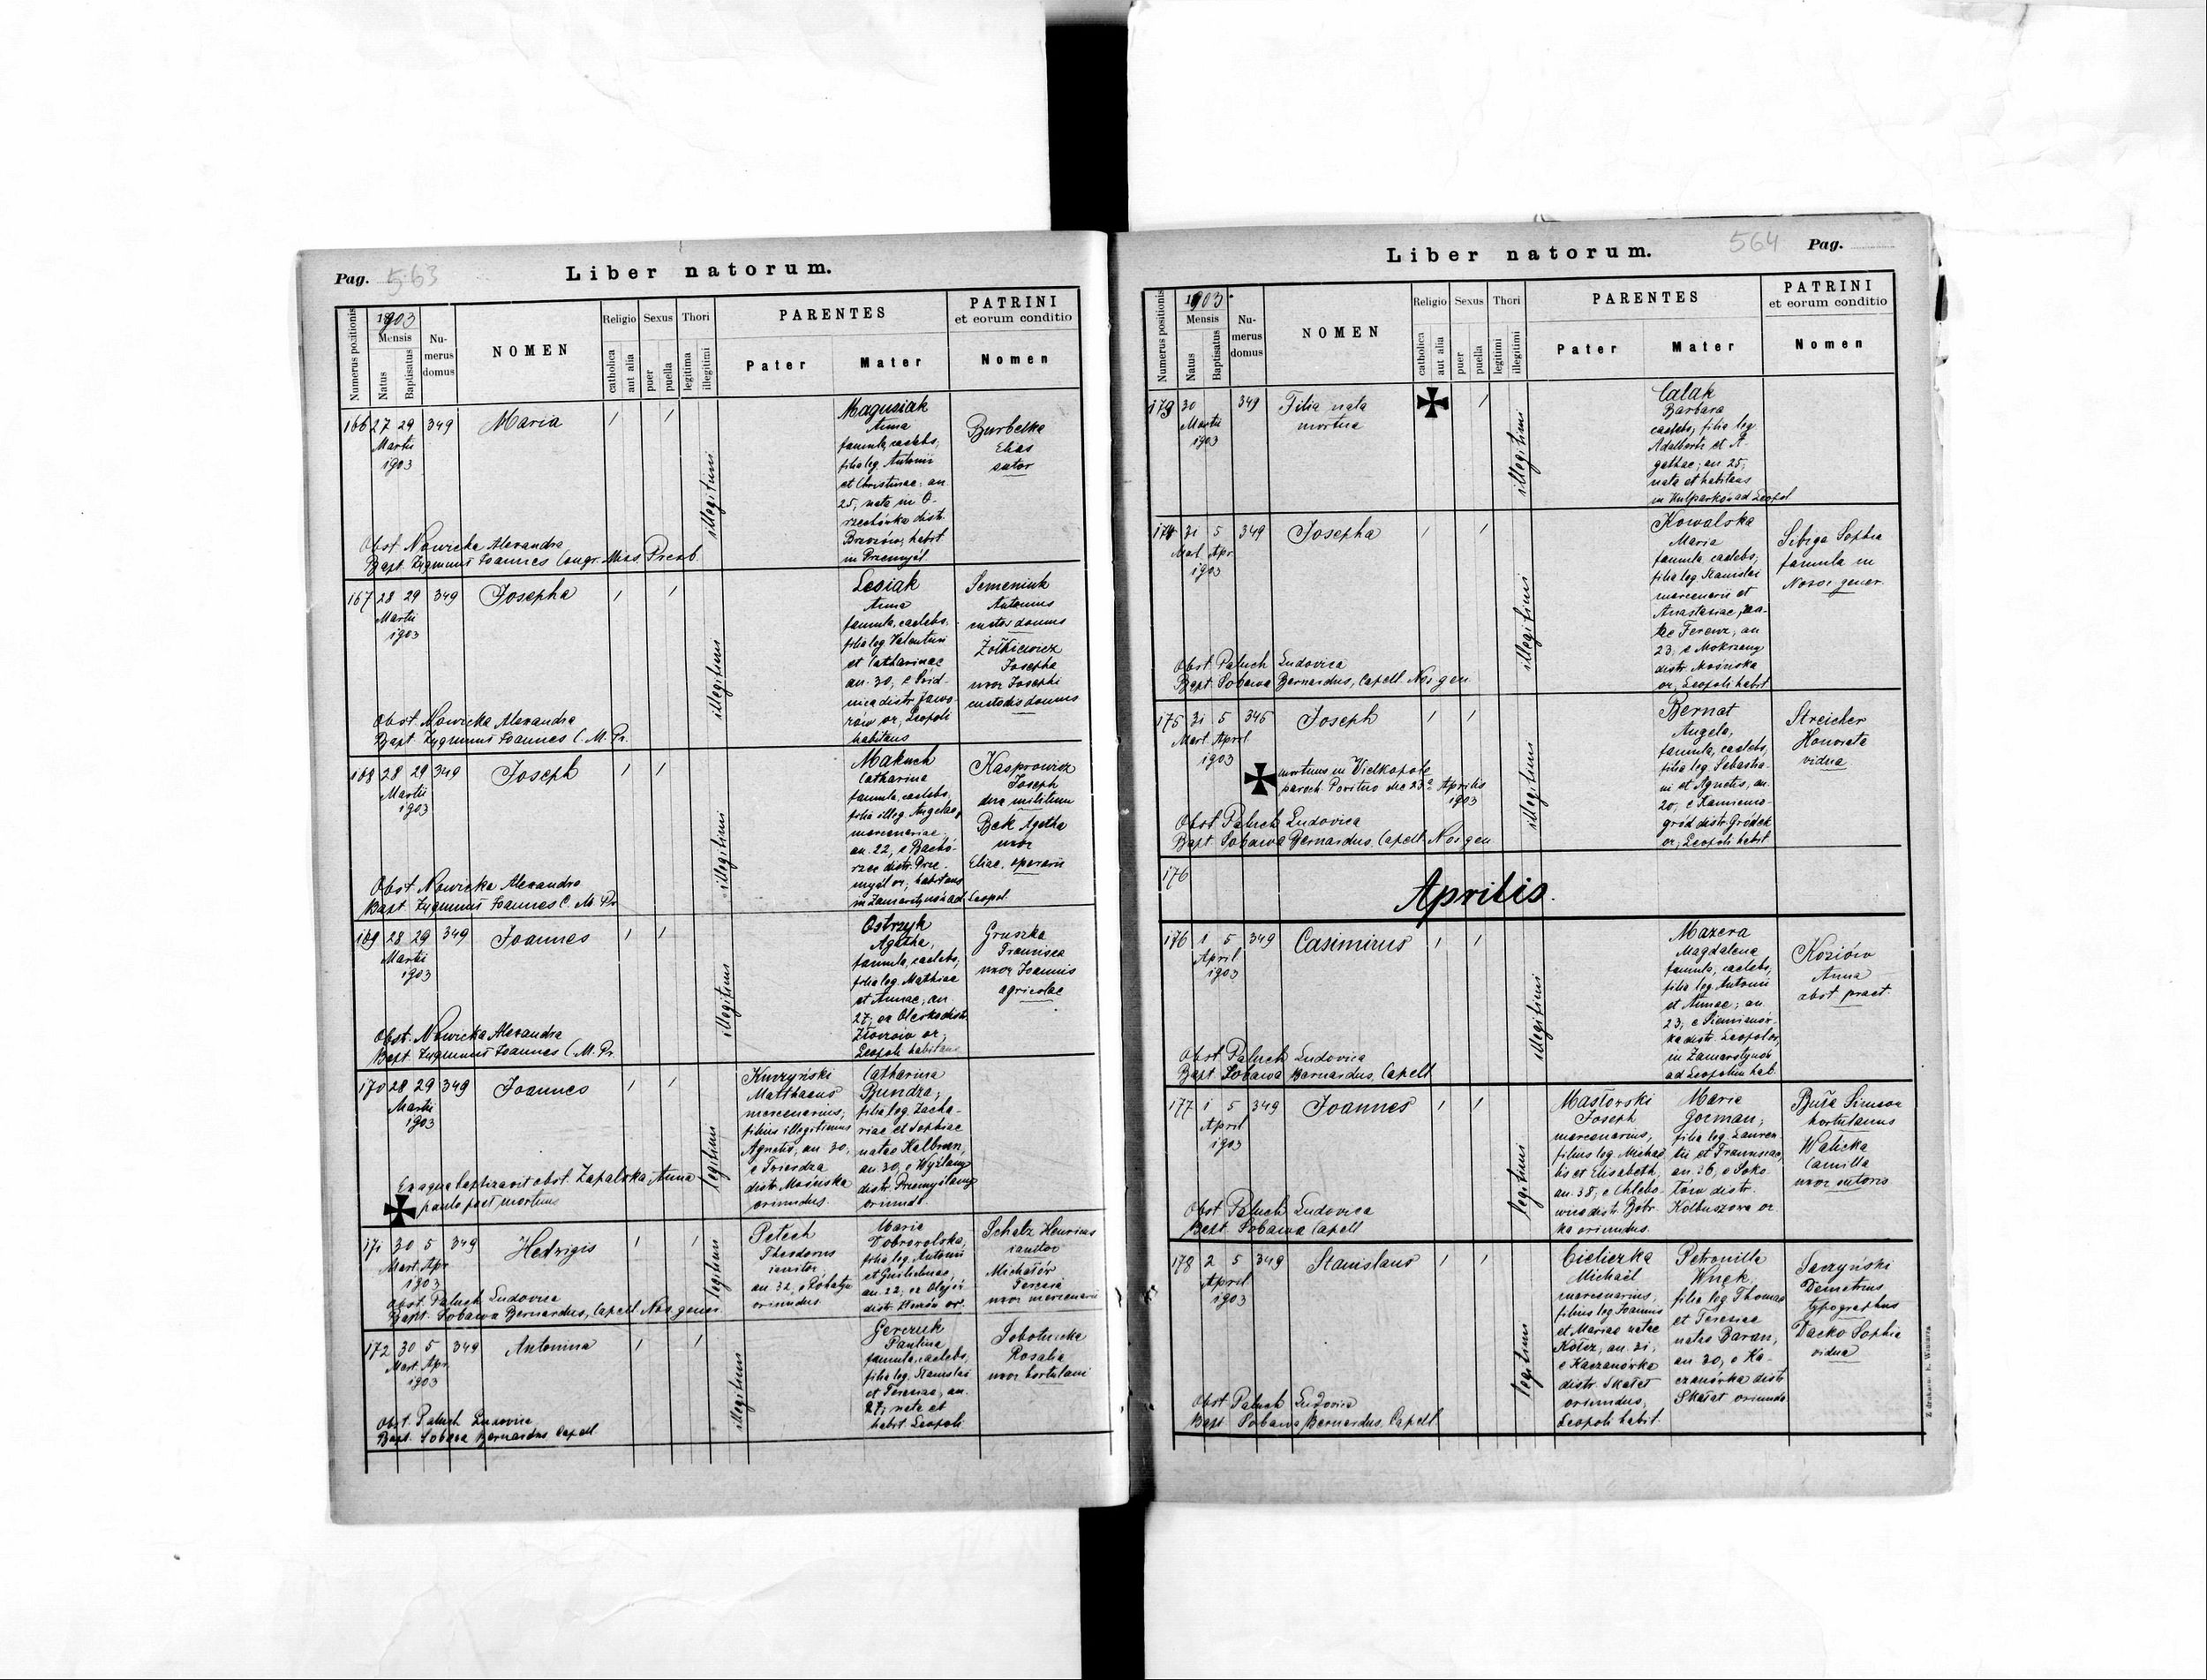 Pag. 563
Liber natorum.
Numerus positionis
1903
Mensis
Natus
Baptisatus
Numerus domus
NOMEN
Religio
catholica
aut alia
Sexus
puer
puella
Thori
legitima
illegitimi
PARENTES
Pater
Mater
PATRINI
et eorum conditio
Nomen
166 27 29 349 Maria / /
Martii
1903
illegitimi
Magusiak
Anna
famula, caelebs,
filia leg. Antonii
et Christinae, an
25, nata in O-
rzechówka distr.
Brzozów, habit
in Przemyśl.
Burbelka
Elias
sutor
Obst. Nowicka Alexandra
Bapt. Zygmunt Joannes Congr. Miss. Presb.
167 28 29 349 Josepha / /
Martii
1903
illegitimi
Lesiak
Anna
famula, caelebs,
filia leg Valentini
et Catharinae
an. 30, e Śrid
nica distr Jawo-
rów or, Leopoli
habitans
Semeniuk
Antonius
custos domus
Żółkiewicz
Josepha
uxor Josephi
custodis domus
Obst. Nowicka Alexandra
Bapt Zygmunt Joannes C. M. Pr.
168 28 29 349 Joseph / /
Martii
1903
illegitimi
Makuch
Catharina
famula, caelebs,
filia illeg. Angelae,
mercenariae,
an. 22, e Bachó-
rzec distr. Prze-
myśl or, habitans
in Zamarstynów ad Leopol.
Kasprowicz
Joseph
dux militum
Bek Agatha
uxor
Eliae, operarii
Obst Nowicka Alexandra
Bapt. Zygmunt Joannes C. M. Pr
169 28 29 349 Joannes / /
Martii
1903
illegitimi
Ostrzyk
Agatha,
famula, caelebs,
filia leg. Mathiae
et Annae, an.
27, ex Olesko distr.
Złoczów or,
Leopoli habitans
Gruszka
Francisca
uxor Joannis
agricolae
Obst. Nowicka Alexandra
Bapt Zygmunt Joannes C. M. Pr.
170 28 29 349 Joannes / /
Martii
1903
legitimi
Kurzyński
Matthaeus
mercenarius,
filius illegitimus
Agnetis, an 30,
e Twierdza
distr Mościska
oriundus.
Catharina
Bundza,
filia leg. Zacha-
riae et Sophiae
natae Kalbrun,
an. 30, e Wyżlany
distr. Przemyślany
oriund.
Ex aqua baptizavit obst. Zapalska Anna
paulo post mortuus
171 30 5 349 Hedvigis / /
Mart. Apr
1903
legitimi
Petech
Theodorus
ianitor
an 32, e Róbatyn
oriundus.
Maria
Dobrovolska,
filia leg. Antonii
et Guilielmae,
an. 22, ex Olejów
distr. Złoczów or.
Schatz Henricus
ianitor
Michałów
Teresia
uxor mercenarii
Obst. Paluch Ludovica
Bapt. Sobawa Bernardus, Capell Nos. gener.
172 30 5 349 Antonina / /
Mart. Apr.
1903
illegitimi
Gerczuk
Paulina
famula, caelebs,
filia leg. Stanislai
et Teresiae, an.
27, nata et
habit. Leopoli
Sobotnicka
Rosalia
uxor hortulani
Obst. Paluch Ludovica
Bapt. Sobawa Bernardus Capell
Liber natorum.
564 Pag.
Numerus positionis
1903.
Mensis
Natus
Baptisatus
Numerus domus
NOMEN
Religio
catholica
aut alia
Sexus
puer
puella
Thori
legitimi
illegitimi
PARENTES
Pater
Mater
PATRINI
et eorum conditio
Nomen
173 30 349 Filia nata /
Martii mortua
1903
illegitimi
Calak
Barbara
caelebs, filia leg
Adalberti et A-
gathae, an 25,
nata et habitans
in Kulparków ad Leopol
174 31 5 349 Josepha / /
Mart Apr
1903
illegitimi
Kowalska
Maria
famula, caelebs,
filia leg. Stanislai
mercenarii et
Anastasiae, na-
tae Ferenz, an
23, e Mokrzany
distr. Mościska
or, Leopoli habit
Sebiga Sophia
famula in
Nosoc. gener.
Obst. Paluch Ludovica
Bapt. Sobawa Bernardus, Capell. Nos gen
175 31 5 345 Joseph / /
Mart. April
1903
illegitimi
mortuus in Wielkopole
paroch. Poritno die 23a Aprilis
1903
Bernat
Angela,
famula, caelebs,
filia leg. Sebastia-
ni et Agnetis, an.
20, e Kamieno-
gród distr Gródek
or, Leopoli habit
Streicher
Honorata
vidua
Obst Paluch Ludovica
Bapt Sobawa Bernardus, Capell. Nos gen.
176
Aprilis.
176 1 5 349 Casimirus / /
April
1903
illegitimi
Mazera
Magdalena
famula, caelebs,
filia leg. Antonii
et Annae, an
23, e Siemianów-
ka distr. Leopol or,
in Zamarstynów
ad Leopolim hab.
Koziów
Anna
obst. pract.
Obst Paluch Ludovica
Bapt. Sobawa Bernardus, Capell
177 1 5 349 Joannes / /
April
1903
legitimi
Masłorski
Joseph
mercenarius,
filius leg. Michae
lis et Elisabeth,
an. 38, e Chlebo-
wice distr. Bóbr-
ka oriundus.
Maria
Gorman,
filia leg. Lauren
tii et Franciscae,
an. 36, e Soko
łów distr.
Kolbuszowa or.
Buła Simeon
hortulanus
Walicka
Camilla
uxor sutoris
Obst Paluch Ludovica
Bapt Sobawa Capell
178 2 5 349 Stanislaus / /
April
1903
legitimi
Cieliczka
Michaël
mercenarius,
filius leg Joannis
et Mariae natae
Kołcz, an. 31,
e Kaczanówka
distr. Skałat
oriundus,
Leopoli habit.
Petronilla
Wnęk,
filia leg Thomae
et Teresiae
natae Baran,
an 30, e Ka-
czanówka distr
Skałat oriunda.
Saczyński
Demetrius
typographus
Dacko Sophia
vidua
Obst Paluch Ludovica
Bapt Sobawa Bernardus, Capell
Z drukarni K. Winiarza